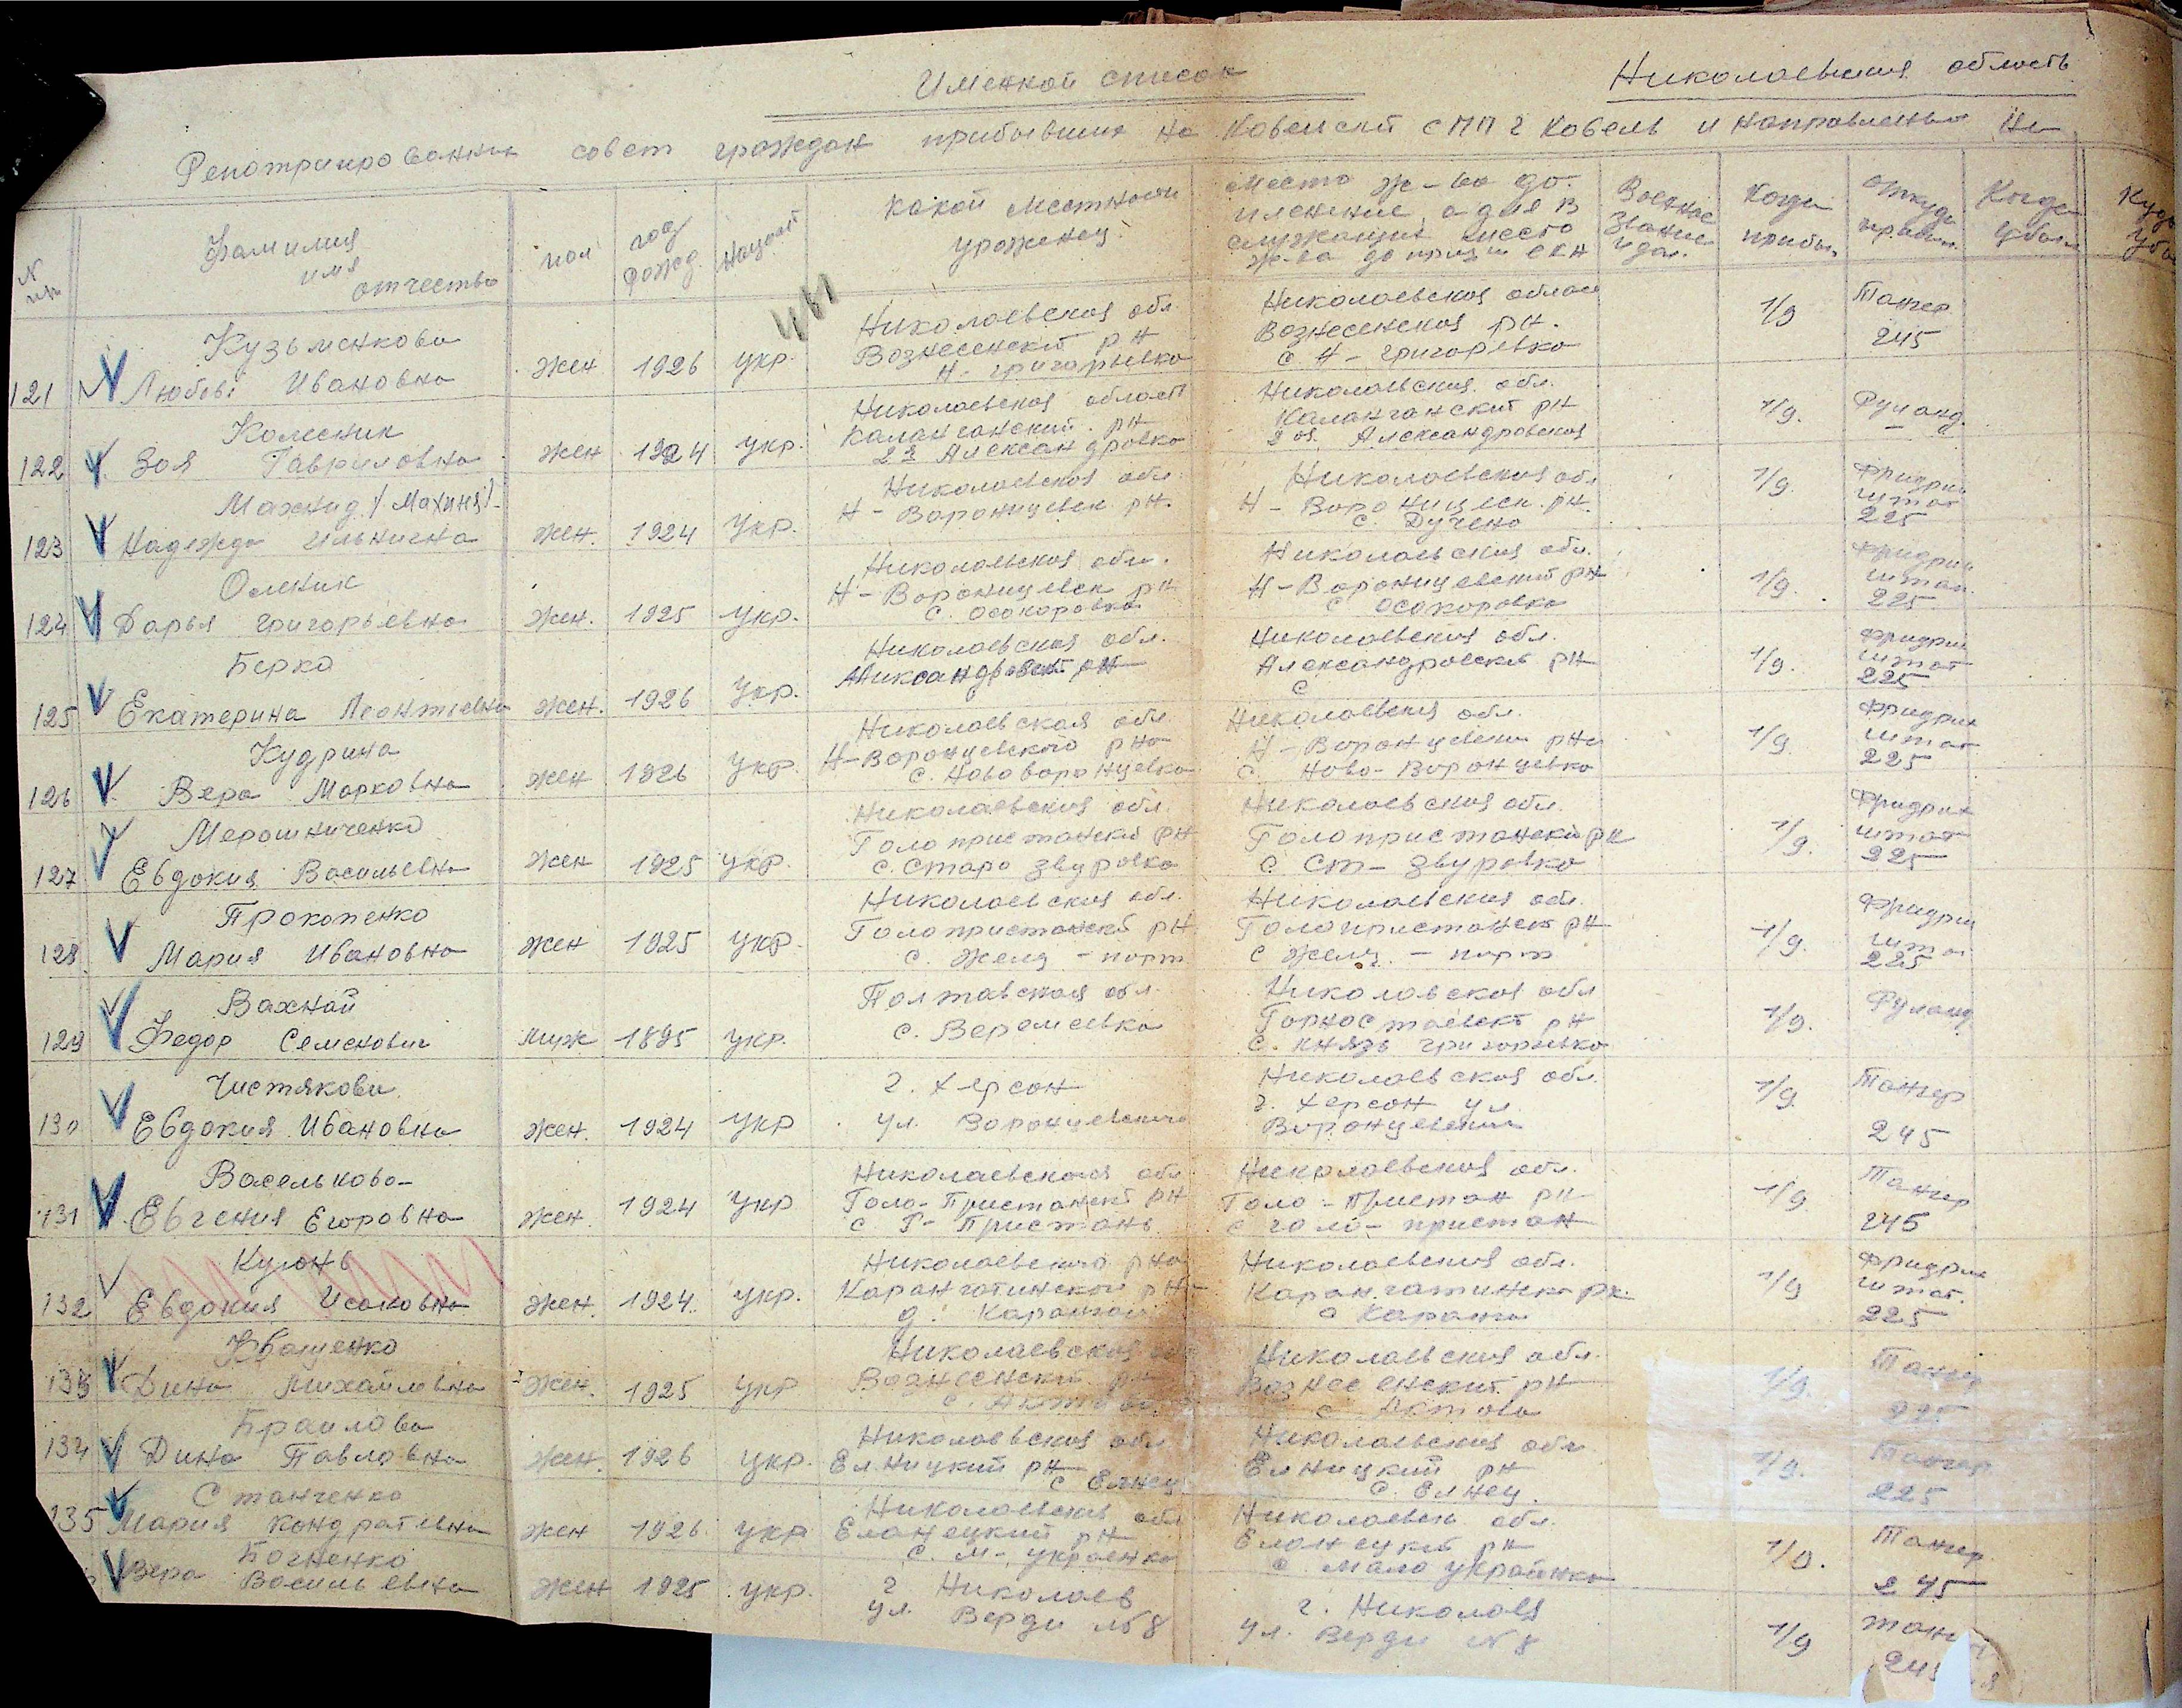 Именной список
Николаевская область
Репотриированных совет граждан прибывших на Ковельский СПП г Ковель и направленных на
N п/п
Фамилия имя отчество
пол
год рожд.
Национ
Какой местности уроженец
Место ж-во до пленение, а для в служащих место ж-ва до призы в КА
Военное звание и дол.
Когда прибыл
Откуда прибыл
Когда убыл
Куда убы
121 Кузьменкова Любовь Ивановна жен 1926 укр.
Николаевская обл. Вознесенский рн Н-Григорьевка
Николаевская област Вознесенская рн. с. Н-Григоревка
1/9 Тангер 245
122 Колесник Зоя Гавриловна жен 1924 укр.
Николаевская область Каланчанский рн 2я Александровка
Николаевская обл. Каланчанский рн 2 ая Александровская
1/9. Руланд
123 Махнид / Махиня/ Надежда Ильнична жен. 1924 Укр.
Николаевская обл. Н-Воронцовск рн.
Николаевская обл Н-Воронцовск. рн. с. Дучено
1/9. Фридрих штат 225
124 Олейник Дарья Григорьевна жен. 1925 Укр.
Николаевская обл. Н-Воронцовск рн с. Осокоровка
Николаевская обл. Н-Воронцовский рн с Осокоровка
1/9. Фридрих штат. 225
125 Берко Екатерина Леонтиевна жен. 1926 Укр.
Николаевская обл. Александровск рн
Николаевская обл. Александровский рн с
1/9. Фридрих штат 225
126 Кудрина Вера Марковна жен 1926 Укр.
Николаевская обл. Н-Воронцевского рна с. Нововоронцевка
Николаевская обл. Н-Воронцевск рна с. Ново-Воронцевка
1/9. Фридрих штат 225
127 Мерошниченко Евдокия Васильевна жен 1925 укр.
Николаевская обл. Голопристанский рн с. Старо Збуровка
Николаевская обл. Голопристанский рн с Ст-Збуровка
1/9. Фридрих штат 225
128 Прокопенко Мария Ивановна жен 1925 укр.
Николаевская обл. Голопристанский рн с. Желз-порт
Николаевская обл. Голопристанск рн с Желз.-порт
1/9. Фридрих штат 225
129 Вахнай Федор Семенович муж 1895 укр.
Полтавская обл. с. Веремеевка
Николавская обл Горностаевск рн с. князь григорьевка
1/9. Руланд
130 Чистякова Евдокия Ивановна жен. 1924 укр
г. Херсон ул. Воронцевского
Николаевская обл. г. Херсон ул Воронцевская
1/9. Тангер 245
131 Василькова Евгения Егоровна жен. 1924 укр
Николаевская обл Голо-Пристанский рн с Г-Пристань
Николаевская обл. Голо-Пристан рн с голо-пристан
1/9. Тангер 245
132 Евдокия Исаковна жен. 1924. укр.
Николаевского рна
Николаевская обл.
1/9 Фридрих штат. 225
133 Дина Михайловна жен. 1925 укр
Николаевская Вознесенский рн с. Актово
Николаевская обл. Вознесенский рн с Актово
1/9. Тангер 225
134 Браилова Дина Павловна жен. 1926 укр.
Николаевская обл Елницкий рн с Елнец
Николаевская обл Елницкий рн с. Елнец.
1/9. Тангер 225
135 Станченко Мария Кондратевна жен 1926 укр
Николаевская обл Еланецкий рн с. М-украенка
Николаевск обл. Еланецкий рн с. Мало украйнка
1/9. Тангер 245
Вера Васильевна жен 1925 укр.
г Николаев ул. Верди №8
г. Николаев ул. Верди №8
1/9